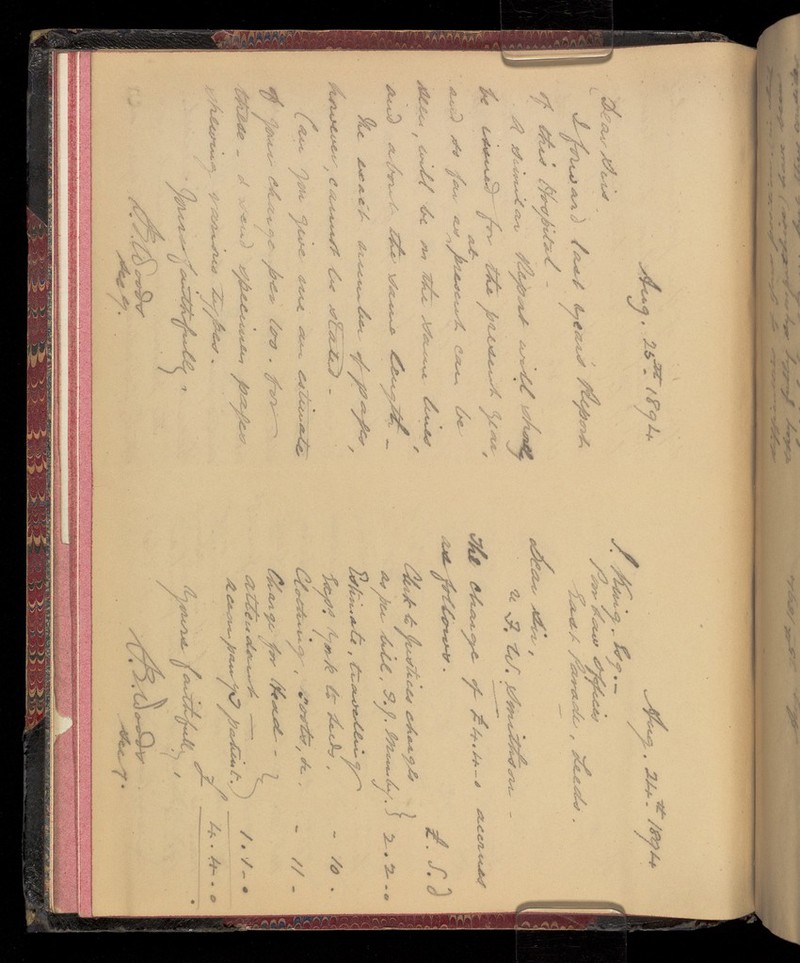 Aug. 24th 1894
J. King. Esq.—
Poor Law Offices
East Parade, Leeds.
Dear Sir,
re F. W. Smithson -
The charge of £4.4.-0 accrues
as follows.
£. S. d
Clerk to Justices charges
as per bill. I. J. Munby. } 2.2-0
Estimate, travelling
Exps. York to Leeds. - 10.
Clothing, boots, &c. - 11 -
Charge for Head- }
attendant —
accompany'g patient. ) 1.1-0
£ 4.4.-0
Yours faithfully,
C. B. Woods
Secy.
Aug. 25th 1894
Dear Sirs
I forward last year's Report
of this Hospital -
A similar Report will shortly
be issued for the present year,
and so far as at present can be
seen, will be on the same lines,
and about the same length -
The exact number of pages,
however, cannot be stated.
Can you give me an estimate
of your charge per 100. for
these - & send specimen pages
shewing various types.
Yours faithfully,
C. B. Woods
Secy.